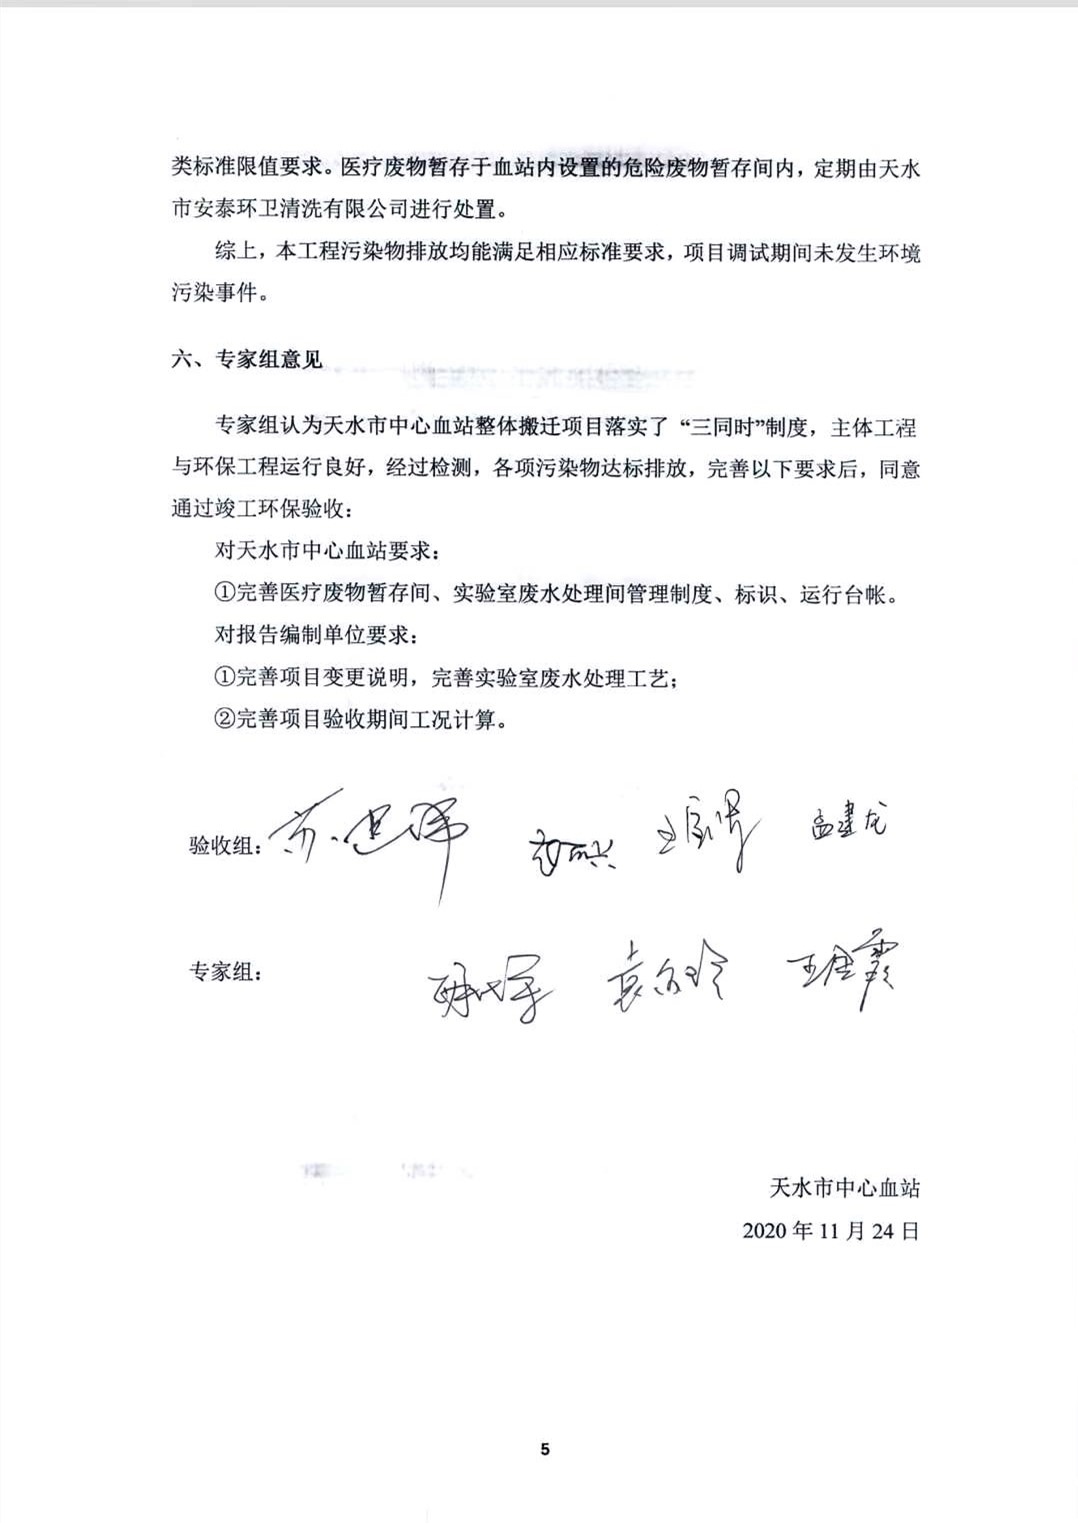 类标准限值要求。医疗废物暂存于血站内设置的危险废物暂存间内，定期由天水
市安泰环卫清洗有限公司进行处置。
综上，本工程污染物排放均能满足相应标准要求，项目调试期间未发生环境
污染事件。
六、专家组意见
专家组认为天水市中心血站整体搬迁项目落实了“三同时”制度，主体工程
与环保工程运行良好，经过检测，各项污染物达标排放，完善以下要求后，同意
通过竣工环保验收：
对天水市中心血站要求：
①完善医疗废物暂存间、实验室废水处理间管理制度、标识、运行台帐。
对报告编制单位要求：
①完善项目变更说明，完善实验室废水处理工艺；
②完善项目验收期间工况计算。
验收组： 孟建龙
专家组：
天水市中心血站
2020 年 11 月 24 日
5